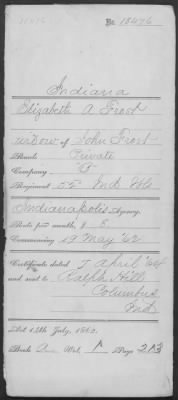 No. 18476
Indiana
Elizabeth A Frost
widow of John Frost
Rank Private
Company "G"
Regiment 55 Ind Vols
Indianapolis Agency.
Rate per month, $ 8
Commencing 19 May '62
Certificate dated 7 April '64
and sent to Ralph Hill
Columbus
Ind
Act 14th July, 1862.
Book Vol. 1 Page 213